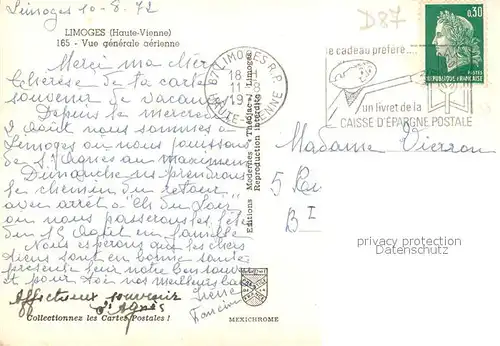 Limoges 10-8-72
D87
LIMOGES (Haute-Vienne)
165 - Vue générale aérienne
Merci ma Mère
Thérèse de ta carte
souvenir de vacances
Depuis le mercredi
2 Août nous sommes à
Limoges ou nous jouissons
de St Agnès au maximum
Dimanche ns prendrons
le chemin du retour
avec arrêt à
ou nous passerons la fête
du 15 Août en famille
Nous espérons que les chers
tiens sont en bonne santé
présente leur notre bon souvenir
et pour toi nos meilleurs
Irène
Francine
Affectueux souvenir
Sr Agnès
Collectionnez les Cartes Postales !
Editions Modernes « Théojac », Limoges
Reproduction interdite
MEXICHROME
87 LIMOGES R.P.
18 H
11-8
197
HAUTE-VIENNE
le cadeau préféré....
un livret de la
CAISSE D'ÉPARGNE POSTALE
0,30
POSTES
REPUBLIQUE FRANÇAISE
Madame Vierron
5 Rue
B I
privacy protection
Datenschutz